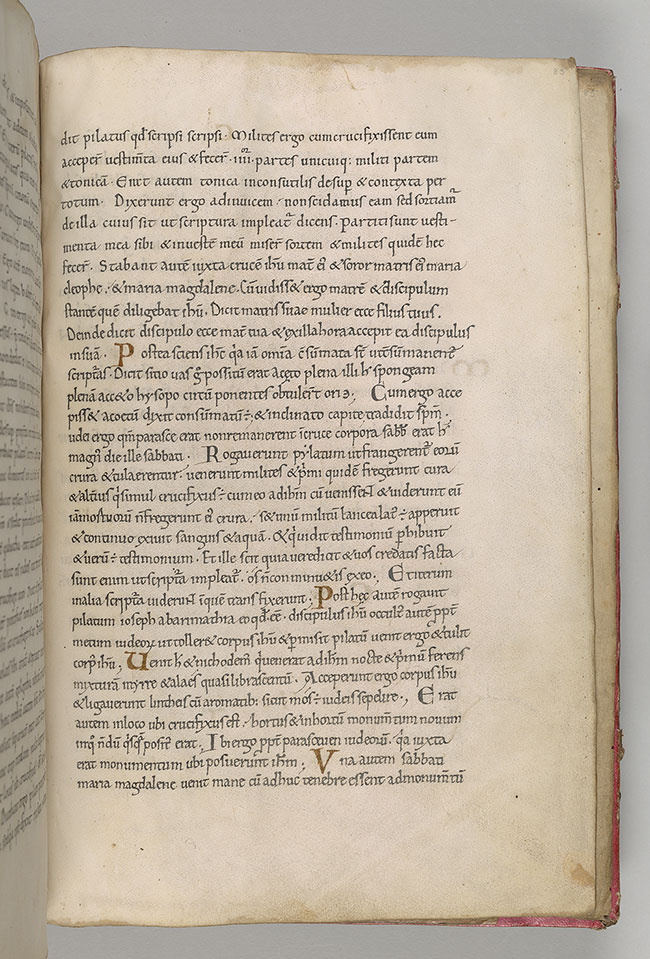 dit pilatus qđ scripsi scripsi · Milites ergo cum crucifixissent eum
acceper̄ vestim̄ta eius & fecer̄ · iiii · partes unicuiq: militi partem
& tonicā · Erat autem tonica inconsutilis desup̄ & contexta per
totum · Dixerunt ergo adinuicem · non scidamus eam sed sortiam̄
de illa cuius sit ut scriptura impleat̄ dicens · partiti sunt vesti-
menta mea sibi & in veste meū miser̄ sortem & milites quidē hec
fecer̄ · Stabant autē iuxta crucē ihū mat̄ ei & soror matris ei maria
cleophe · & maria magdalene · Cū vidiss& ergo matrē & discipulum
stantē quē diligebat ihū · Dicit matri suae mulier ecce filius tuus ·
Deinde dicit discipulo ecce mat̄ tua & ex illa hora accepit ea discipulus
in suā · Postea sciens ihc̄ q̄a iam om̄a
script̄as · Dicit sitio vas possitū erat aceto plena illi spongeam
plenā acc&o hysopo circū ponentes obtuler̄t ori · Cum ergo acce
piss& acoetū dixit consūmatū ÷ · & inclinato capite tradidit sp̄m ·
udei ergo qm̄ parasce erat non remanerent īcruce corpora sabb̄ erat
magn̄ die ille sabbati · Rogaverunt pylatum ut frangerent̄ eorū
crura & tullaerentur · venerunt milites & p̄mi quidē fregerunt cura
& alt̄ius q̄ simul crucifixus ÷ cum eo ad ihm̄ cū venissent & viderunt eū
iā mostuorū n̄ fregerunt ei crura · s& unū militū lancea lat̄ ÷ apperuit
& continuo exivit sanguis & aquā · & q̄ vidit testimoniū p̄hibuit
& verū ÷ testimonium · Et ille scit quia vere dicit & vos credatis facta
sunt enim ut script̄a impleat̄ · os n̄ conminu&is ex eo · Et iterum
in alia script̄a viderunt in quē transfixerunt ; Post hec autē rogavit
pilatum ioseph abarimathia eo qđ · discipulus ihū occult̄ autē ppt̄
metum iudeorū ut toller& corpus ihū & p̄misit pilatū venit ergo & tulit
corp̄ ihū ; Uenit & nichodem̄ q̄ venerat ad ihm̄ nocte p̄mū ferens
mixturam myrre & alaes quasi libras centū · Acceperunt ergo corpus ihū
& ligaverunt lintheis cū aromatib: sicut mos ÷ iudeis sepelire · Erat
autem in loco ubi crucifixus est · hortus & in hortū monum̄tum novum
in q̄ n̄dū q̄sq̄ posit̄ erat · Ibi ergo ppt̄ parasceven iudeorū · q̄a iuxta
erat monumentum ubi posuerunt ihm̄ ; Una autem sabbati
maria magdalene venit mane cū adhuc tenebre essent ad monum̄tū